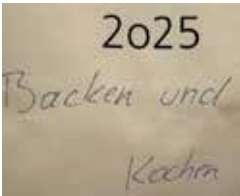 2025
Backen und
Kochen